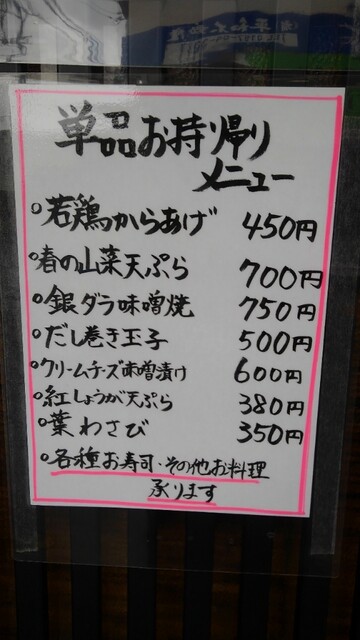 単品お持ち帰り
メニュー
○若鶏からあげ 450円
○春の山菜天ぷら 700円
○銀ダラ味噌焼 750円
○だし巻き玉子 500円
○クリームチーズ味噌漬け 600円
○紅しょうが天ぷら 380円
○葉わさび 350円
○各種お寿司・その他お料理
承ります